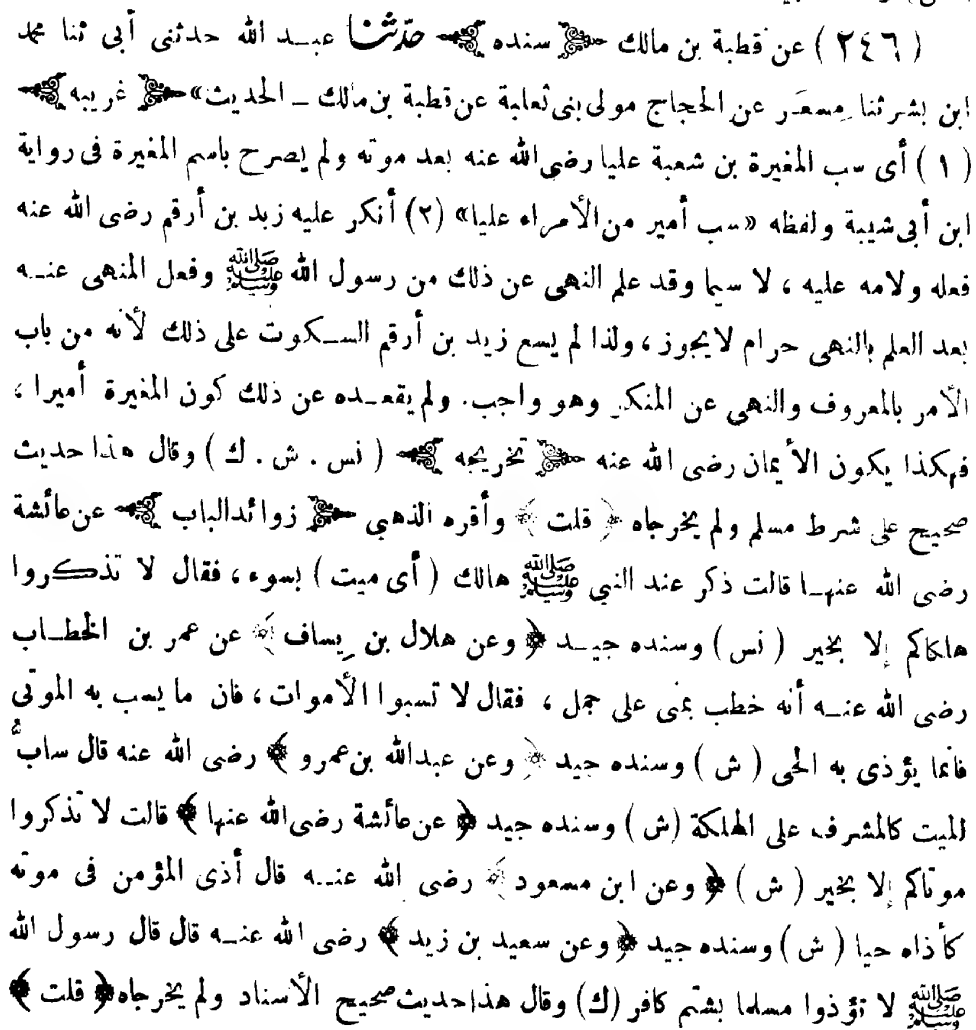 ( ٢٤٦ ) عن قطبة بن مالك ﴿ سنده ﴾ حدثنا عبد الله حدثنى أبى ثنا محمد
ابن بشر ثنا مسعر عن الحجاج مولى بنى ثعلبة عن قطبة بن مالك ـ الحديث» ﴿ غريبه ﴾
( ١ ) أى سب المغيرة بن شعبة عليا رضى الله عنه بعد موته ولم يصرح باسم المغيرة فى رواية
ابن أبى شيبة ولفظه «سب أمير من الأمراء عليا» (٢) أنكر عليه زيد بن أرقم رضى الله عنه
فعله ولامه عليه ، لا سيما وقد علم النهى عن ذلك من رسول الله ﷺ وفعل المنهى عنه
بعد العلم بالنهى حرام لايجوز ، ولذا لم يسع زيد بن أرقم السكوت على ذلك لأنه من باب
الأمر بالمعروف والنهى عن المنكر وهو واجب. ولم يقعده عن ذلك كون المغيرة أميرا ،
فهكذا يكون الأيمان رضى الله عنه ﴿ تخريجه ﴾ ( نس . ش . ك ) وقال هذا حديث
صحيح على شرط مسلم ولم يخرجاه ﴿ قلت ﴾ وأقره الذهبي ﴿ زوائد الباب ﴾ عن عائشة
رضى الله عنها قالت ذكر عند النبي ﷺ هالك ( أى ميت ) بسوء ، فقال لا تذكروا
هلكاكم إلا بخير ( نس ) وسنده جيد ﴿ وعن هلال بن يساف ﴾ عن عمر بن الخطاب
رضى الله عنه أنه خطب بمنى على جمل ، فقال لا تسبوا الأموات ، فان ما يسب به الموتى
فانما يؤذى به الحى ( ش ) وسنده جيد ﴿ وعن عبدالله بن عمرو ﴾ رضى الله عنه قال سابُّ
الميت كالمشرف على الهلكة (ش ) وسنده جيد ﴿ عن عائشة رضى الله عنها ﴾ قالت لا تذكروا
موتاكم إلا بخير ( ش ) ﴿ وعن ابن مسعود ﴾ رضى الله عنه قال أذى المؤمن فى موته
كأذاه حيا ( ش ) وسنده جيد ﴿ وعن سعيد بن زيد ﴾ رضى الله عنه قال قال رسول الله
ﷺ لا تؤذوا مسلما بشتم كافر (ك) وقال هذا حديث صحيح الأسناد ولم يخرجاه ﴿ قلت ﴾